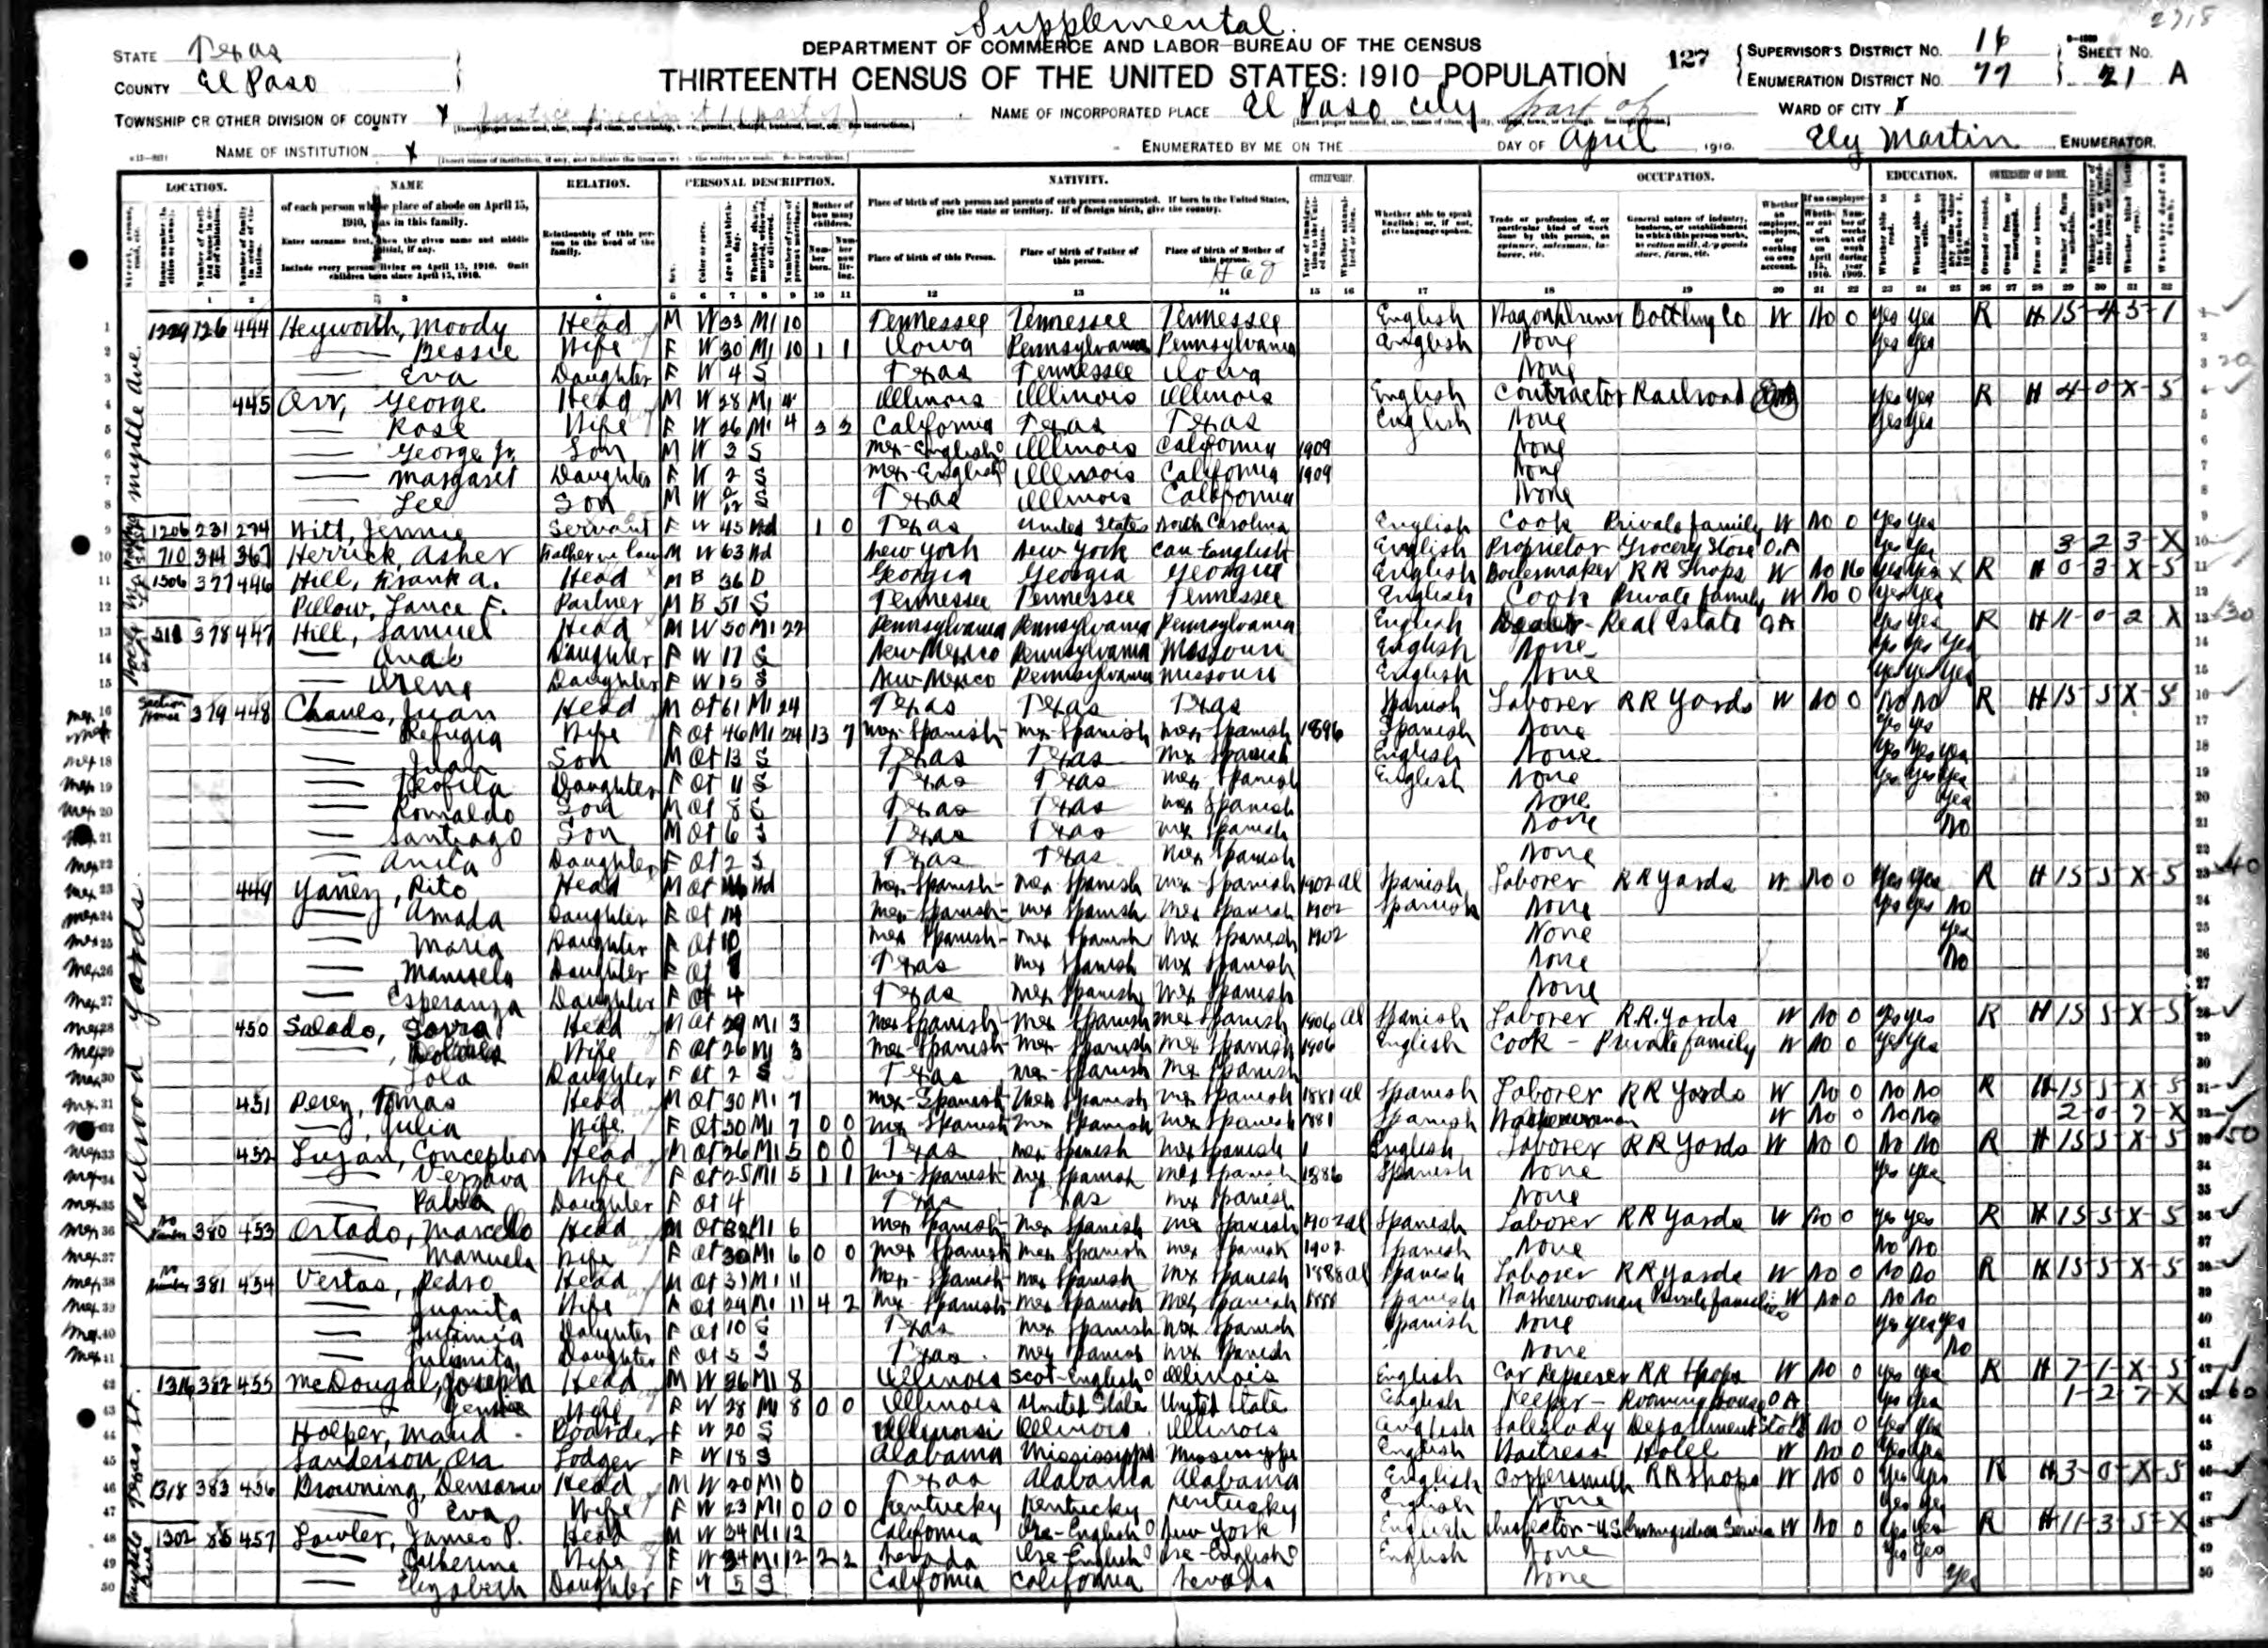 2718
Supplemental.
DEPARTMENT OF COMMERCE AND LABOR-BUREAU OF THE CENSUS
THIRTEENTH CENSUS OF THE UNITED STATES: 1910 POPULATION
127
STATE Texas
COUNTY El Paso
TOWNSHIP OR OTHER DIVISION OF COUNTY X Justice Precinct 1 (part of)
NAME OF INSTITUTION X
NAME OF INCORPORATED PLACE El Paso City part of
ENUMERATED BY ME ON THE DAY OF April, 1910.
SUPERVISOR'S DISTRICT NO. 16
ENUMERATION DISTRICT NO. 77
SHEET NO. 21 A
WARD OF CITY X
Ely Martin ENUMERATOR.
LOCATION. NAME RELATION. PERSONAL DESCRIPTION. NATIVITY. CITIZENSHIP. OCCUPATION. EDUCATION. OWNERSHIP OF HOME.
of each person whose place of abode on April 15, 1910, was in this family.
Enter surname first, then the given name and middle initial, if any.
Include every person living on April 15, 1910. Omit children born since April 15, 1910.
Relationship of this person to the head of the family.
Place of birth of each person and parents of each person enumerated. If born in the United States, give the state or territory. If of foreign birth, give the country.
Place of birth of this Person. Place of birth of Father of this person. Place of birth of Mother of this person.
Whether able to speak English; or, if not, give language spoken.
1 2 3 4 5 6 7 8 9 10 11 12 13 14 15 16 17 18 19 20 21 22 23 24 25 26 27 28 29 30 31 32
Myrtle Ave.
1 1229 126 444 Heyworth, Moody Head M W 33 M1 10 Tennessee Tennessee Tennessee English Wagon Driver Bottling Co W No 0 Yes Yes R H 15-4 5-1
2 — Bessie Wife F W 30 M1 10 1 1 Iowa Pennsylvania Pennsylvania English None Yes Yes
3 — Eva Daughter F W 4 S Texas Tennessee Iowa None
4 445 Orr, George Head M W 28 M1 4 Illinois Illinois Illinois English Contractor Railroad Yes Yes R H 4-0-X-5
5 — Rose Wife F W 26 M1 4 3 3 California Texas Texas English None Yes Yes
6 — George Jr. Son M W 3 S Mex-English Illinois California 1909 None
7 — Margaret Daughter F W 2 S Mex-English Illinois California 1909 None
8 — Lee Son M W 2/12 S Texas Illinois California None
9 1206 231 274 Witt, Jennie Servant F W 45 Wd 1 0 Texas United States North Carolina English Cook Private family W No 0 Yes Yes
10 710 314 367 Herrick, Asher Father in law M W 63 Wd New York New York Can-English English Proprietor Grocery Store O.A Yes Yes 3 2 3-X
11 1506 377 446 Hill, Frank A. Head M B 36 D Georgia Georgia Georgia English Boilermaker RR Shops W No 16 Yes Yes X R H 0-3-X-5
12 Pillow, Lance F. Partner M B 51 S Tennessee Tennessee Tennessee English Cook Private family W No 0 Yes Yes
13 378 447 Hill, Samuel Head M W 50 M1 22 Pennsylvania Pennsylvania Pennsylvania English Real Estate O A Yes Yes R H 11-0-2 X
14 — Daughter F W 17 S New Mexico Pennsylvania Missouri English None Yes Yes Yes
15 — Irene Daughter F W 15 S New Mexico Pennsylvania Missouri English None Yes Yes Yes
Railroad Yards.
16 Section House 379 448 Chaves, Juan Head M Ot 61 M1 24 Texas Texas Texas Spanish Laborer RR Yards W No 0 No No R H 15-5 X-5
17 — Refugia Wife F Ot 46 M1 24 13 7 Mex-Spanish Mex-Spanish Mex-Spanish 1896 Spanish None Yes Yes
18 — Juan Son M Ot 13 S Texas Texas Mex Spanish English None Yes Yes Yes
19 — Teofila Daughter F Ot 11 S Texas Texas Mex Spanish English None Yes Yes Yes
20 — Romaldo Son M Ot 8 S Texas Texas Mex Spanish None Yes
21 — Santiago Son M Ot 6 S Texas Texas Mex Spanish None No
22 — Anita Daughter F Ot 2 S Texas Texas Mex Spanish None
23 449 Yañez, Rito Head M Ot Wd Mex-Spanish Mex Spanish Mex-Spanish 1902 al Spanish Laborer RR Yards W No 0 Yes Yes R H 15-5-X-5
24 — Amada Daughter F Ot 14 Mex-Spanish Mex Spanish Mex Spanish 1902 Spanish None Yes Yes No
25 — Maria Daughter F Ot 10 Mex Spanish Mex Spanish Mex Spanish 1902 None Yes
26 — Manuela Daughter F Ot Texas Mex Spanish Mex Spanish None No
27 — Esperanza Daughter F Ot 4 Texas Mex Spanish Mex Spanish None
28 450 Salado, Head M Ot 29 M1 3 Mex Spanish Mex Spanish Mex Spanish 1906 al Spanish Laborer R.R. Yards W No 0 Yes Yes R H 15 5-X-5
29 — Wife F Ot 26 M1 3 Mex-Spanish Mex-Spanish Mex Spanish 1906 English Cook - Private family W No 0 Yes Yes
30 Lola Daughter F Ot 2 S Texas Mex-Spanish Mex Spanish
31 451 Perez, Tomas Head M Ot 30 M1 7 Mex-Spanish Mex Spanish Mex Spanish 1881 al Spanish Laborer RR Yards W No 0 No No R H 15 5-X-5
32 —, Julia Wife F Ot 30 M1 7 0 0 Mex-Spanish Mex Spanish Mex Spanish 1881 Spanish Washerwoman W No 0 No No 2-0-7-X
33 452 Lujan, Conception Head M Ot 26 M1 5 0 0 Texas Mex Spanish Mex Spanish English Laborer RR Yards W No 0 No No R H 15 5-X-5
34 — Wife F Ot 25 M1 5 1 1 Mex-Spanish Mex Spanish Mex Spanish 1886 Spanish None Yes Yes
35 — Daughter F Ot 4 Texas Texas Mex Spanish None
36 No Number 380 453 Ortado, Marcello Head M Ot 32 M1 6 Mex Spanish Mex Spanish Mex Spanish 1902 al Spanish Laborer RR Yards W No 0 Yes Yes R H 15 5 X-5
37 — Manuela Wife F Ot 30 M1 6 0 0 Mex Spanish Mex Spanish Mex Spanish 1902 Spanish None No No
38 No Number 381 454 Vertas, Pedro Head M Ot 31 M1 11 Mex-Spanish Mex Spanish Mex Spanish 1888 al Spanish Laborer RR Yards W No 0 No No R H 15-5-X-5
39 — Juanita Wife F Ot 24 M1 11 4 2 Mex Spanish Mex Spanish Mex Spanish 1888 Spanish Washerwoman Private families W No 0 No No
40 — Daughter F Ot 10 S Texas Mex Spanish Mex Spanish Spanish None Yes Yes Yes
41 — Daughter F Ot 5 S Texas Mex Spanish Mex Spanish None No
Texas St.
42 1316 382 455 McDougal, Joseph Head M W 36 M1 8 Illinois Scot-English Illinois English Car Repairer RR Shops W No 0 Yes Yes R H 7-1-X-5
43 — Jennie Wife F W 28 M1 8 0 0 Illinois United State United State English Keeper - Rooming house O A Yes Yes 1-2 7 X
44 Holper, Maud - Boarder F W 20 S Illinois Illinois Illinois English Saleslady Department Store W No 0 Yes Yes
45 Sanderson, Ora Lodger F W 18 S Alabama Mississippi Mississippi English Waitress Hotel W No 0 Yes Yes
46 1318 383 456 Browning, Head M W 20 M1 0 Texas Alabama Alabama English Coppersmith RR Shops W No 0 Yes Yes R H 3-0-X-5
47 — Eva Wife F W 23 M1 0 0 0 Kentucky Kentucky Kentucky English None Yes Yes
Myrtle Ave
48 1302 85 457 Lawler, James P. Head M W 34 M1 12 California Ire-English New York English Inspector - US Immigration Service W No 0 Yes Yes R H 11-3-5-X
49 — Catherine Wife F W 34 M1 12 2 2 Nevada Ire-English Ire-English English None Yes Yes
50 — Elizabeth Daughter F W 5 S California California Nevada None Yes